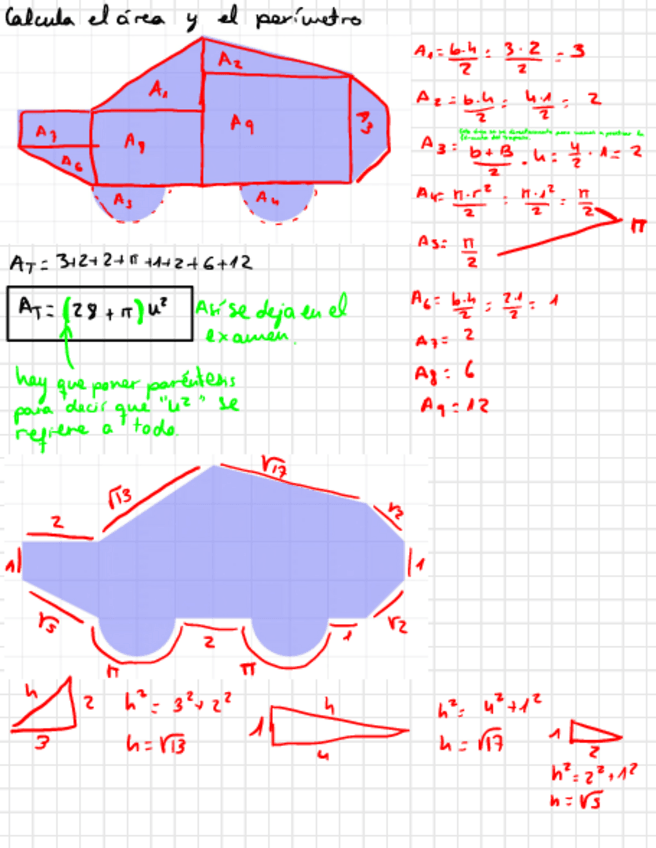 Calcula el área y el perímetro
A₁
A₂
A₃
A₇
A₈
A₉
A₆
A₅
A₄
A₁ = b·h/2 = 3·2/2 = 3
A₂ = b·h/2 = 4·1/2 = 2
A₃ = b+B/2 · h = 4/2 · 1 = 2
A₄ = π·r²/2 = π·1²/2 = π/2
π
A₅ = π/2
A₆ = b·h/2 = 2·1/2 = 1
A₇ = 2
A₈ = 6
A₉ = 12
A_T = 3+2+2+π+1+2+6+12
A_T = (28 + π) u²
Así se deja en el
examen.
hay que poner paréntesis
para decir que "u²" se
refiere a todo.
√17
√13
2
√2
1
1
√5
2
1
√2
π
π
h
2
3
h² = 3² + 2²
h = √13
h
1
4
h² = 4² + 1²
h = √17
1
2
h² = 2² + 1²
h = √5